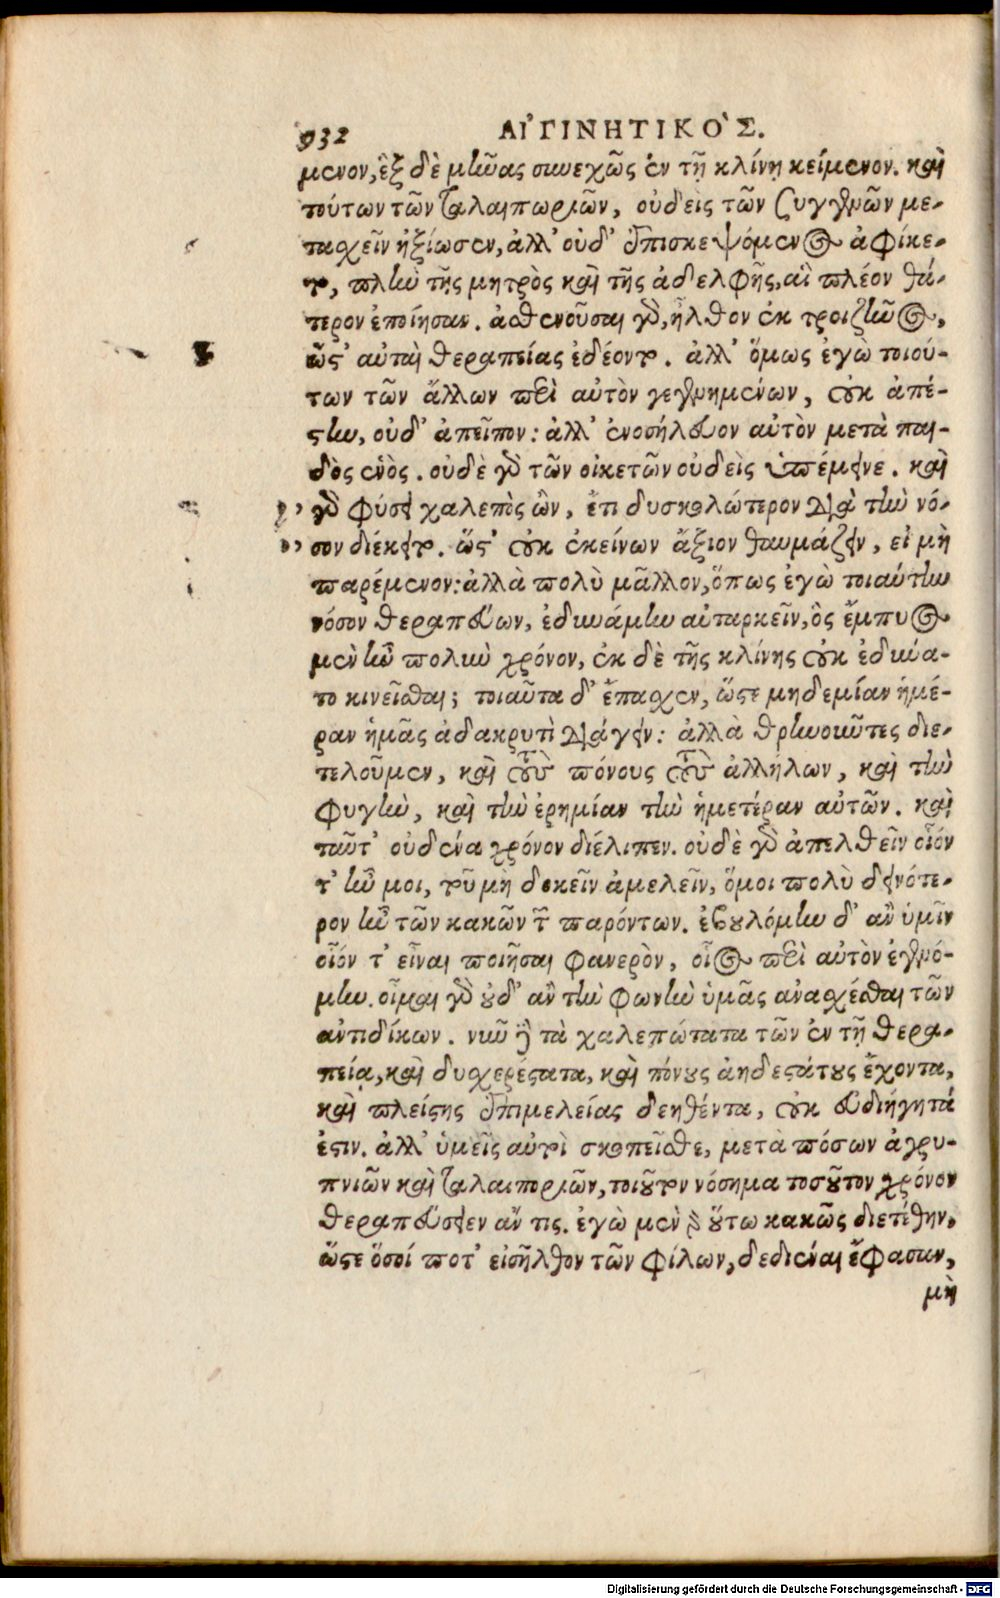 932 ΑἸΓΙΝΗΤΙΚῸΣ.
μενον, ἓξ δὲ μῆνας συνεχῶς ἐν τῇ κλίνῃ κείμενον. καὶ
τούτων τῶν ταλαιπωριῶν, οὐδεὶς τῶν συγγενῶν με-
ταχεῖν ἠξίωσεν, ἀλλ' οὐδ' ἐπισκεψόμενος ἀφίκε-
το, πλὴν τῆς μητρὸς καὶ τῆς ἀδελφῆς, αἳ πλέον θά-
τερον ἐποίησαν. ἀσθενοῦσαι γὰρ, ἦλθον ἐκ τροιζῆνος,
ὥστ' αὐταὶ θεραπείας ἐδέοντο. ἀλλ' ὅμως ἐγὼ τοιού-
των τῶν ἄλλων περὶ αὐτὸν γεγενημένων, οὐκ ἀπέ-
στην, οὐδ' ἀπεῖπον: ἀλλ' ἐνοσήλευον αὐτὸν μετὰ παι-
δὸς ἑνὸς. οὐδὲ γὰρ τῶν οἰκετῶν οὐδεὶς ὑπέμεινε. καὶ
γὰρ φύσει χαλεπὸς ὢν, ἔτι δυσκολώτερον διὰ τὴν νό-
σον διέκειτο. ὥστ' οὐκ ἐκείνων ἄξιον θαυμάζειν, εἰ μὴ
παρέμενον: ἀλλὰ πολὺ μᾶλλον, ὅπως ἐγὼ τοιαύτην
νόσον θεραπεύων, ἐδυνάμην αὐταρκεῖν, ὃς ἔμπυος
μὲν ἦν πολὺν χρόνον, ἐκ δὲ τῆς κλίνης οὐκ ἐδύνα-
το κινεῖσθαι; τοιαῦτα δ' ἔπασχεν, ὥστε μηδεμίαν ἡμέ-
ραν ἡμᾶς ἀδακρυτὶ διάγειν: ἀλλὰ θρηνοῦντες διε-
τελοῦμεν, καὶ τοὺς πόνους τοὺς ἀλλήλων, καὶ τὴν
φυγὴν, καὶ τὴν ἐρημίαν τὴν ἡμετέραν αὐτῶν. καὶ
ταῦτ' οὐδένα χρόνον διέλιπεν. οὐδὲ γὰρ ἀπελθεῖν οἷόν
τ' ἦν μοι, τοῦ μὴ δοκεῖν ἀμελεῖν, ὅμοι πολὺ δεινότε-
ρον ἦν τῶν κακῶν τῶν παρόντων. ἐβουλόμην δ' ἂν ὑμῖν
οἷόν τ' εἶναι ποιῆσαι φανερὸν, οἷος περὶ αὐτὸν ἐγενό-
μην. οἶμαι γὰρ οὐδ' ἂν τὴν φωνὴν ὑμᾶς ἀνασχέσθαι τῶν
ἀντιδίκων. νῦν δὲ τὰ χαλεπώτατα τῶν ἐν τῇ θερα-
πείᾳ, καὶ δυχερέστατα, καὶ πόνους ἀηδεστάτους ἔχοντα,
καὶ πλείστης ἐπιμελείας δεηθέντα, οὐκ εὐδιήγητά
ἐστιν. ἀλλ' ὑμεῖς αὐτοὶ σκοπεῖσθε, μετὰ πόσων ἀγρυ-
πνιῶν καὶ ταλαιποριῶν, τοιοῦτον νόσημα τοσοῦτον χρόνον
θεραπεύσειεν ἄν τις. ἐγὼ μὲν γὰρ οὕτω κακῶς διετέθην,
ὥστε ὅσοί ποτ' εἰσῆλθον τῶν φίλων, δεδιέναι ἔφασαν,
μὴ
Digitalisierung gefördert durch die Deutsche Forschungsgemeinschaft - DFG